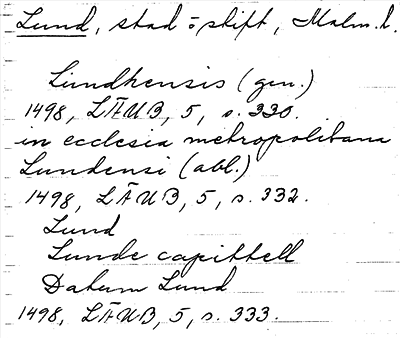 Lund, stad o skift, Malm. l.
Lundhensis (gen.)
1498, LÄUB, 5, s. 330.
in ecclesia metropolitana
Lundensi (abl.)
1498, LÄUB, 5, s. 332.
Lund
Lunde capittell
Datum Lund
1498, LÄUB, 5, s. 333.